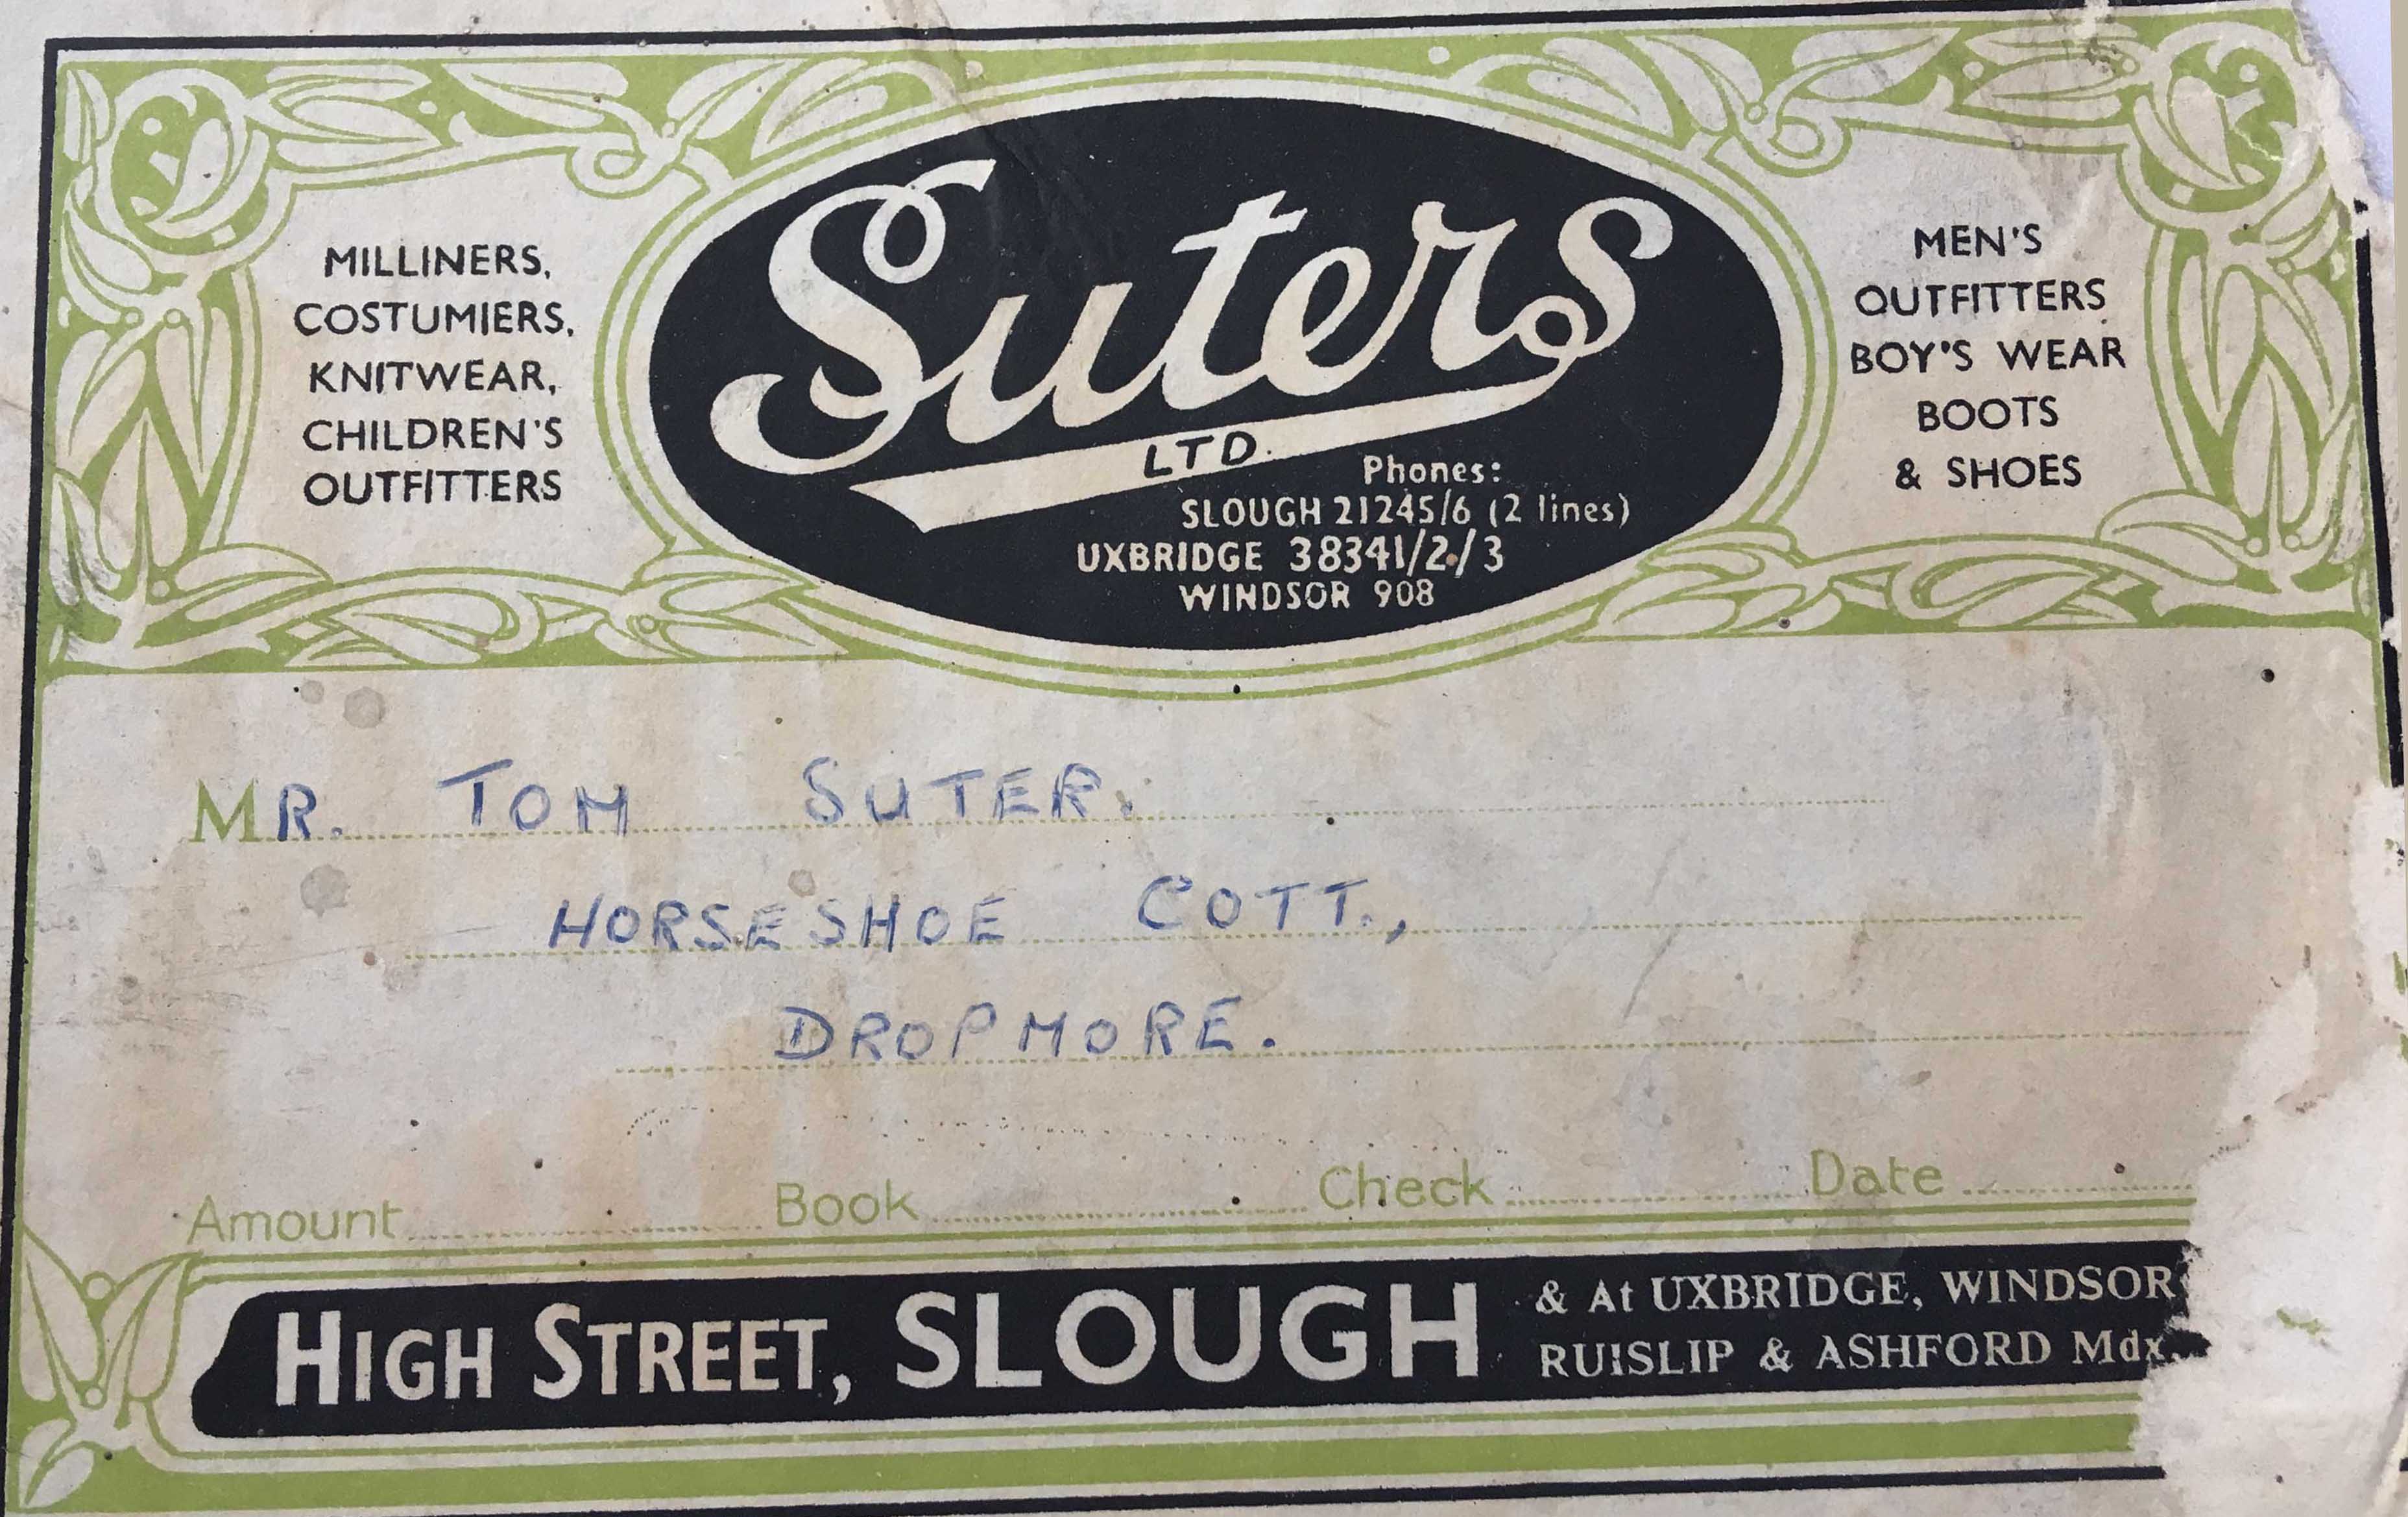 MILLINERS,
COSTUMIERS,
KNITWEAR,
CHILDREN'S
OUTFITTERS
Suters
LTD.
Phones:
SLOUGH 21245/6 (2 lines)
UXBRIDGE 38341/2/3
WINDSOR 908
MEN'S
OUTFITTERS
BOY'S WEAR
BOOTS
& SHOES
MR. TOM SUTER.
HORSESHOE COTT.,
DROPMORE.
Amount Book Check Date
HIGH STREET, SLOUGH
& At UXBRIDGE, WINDSOR
RUISLIP & ASHFORD Mdx.